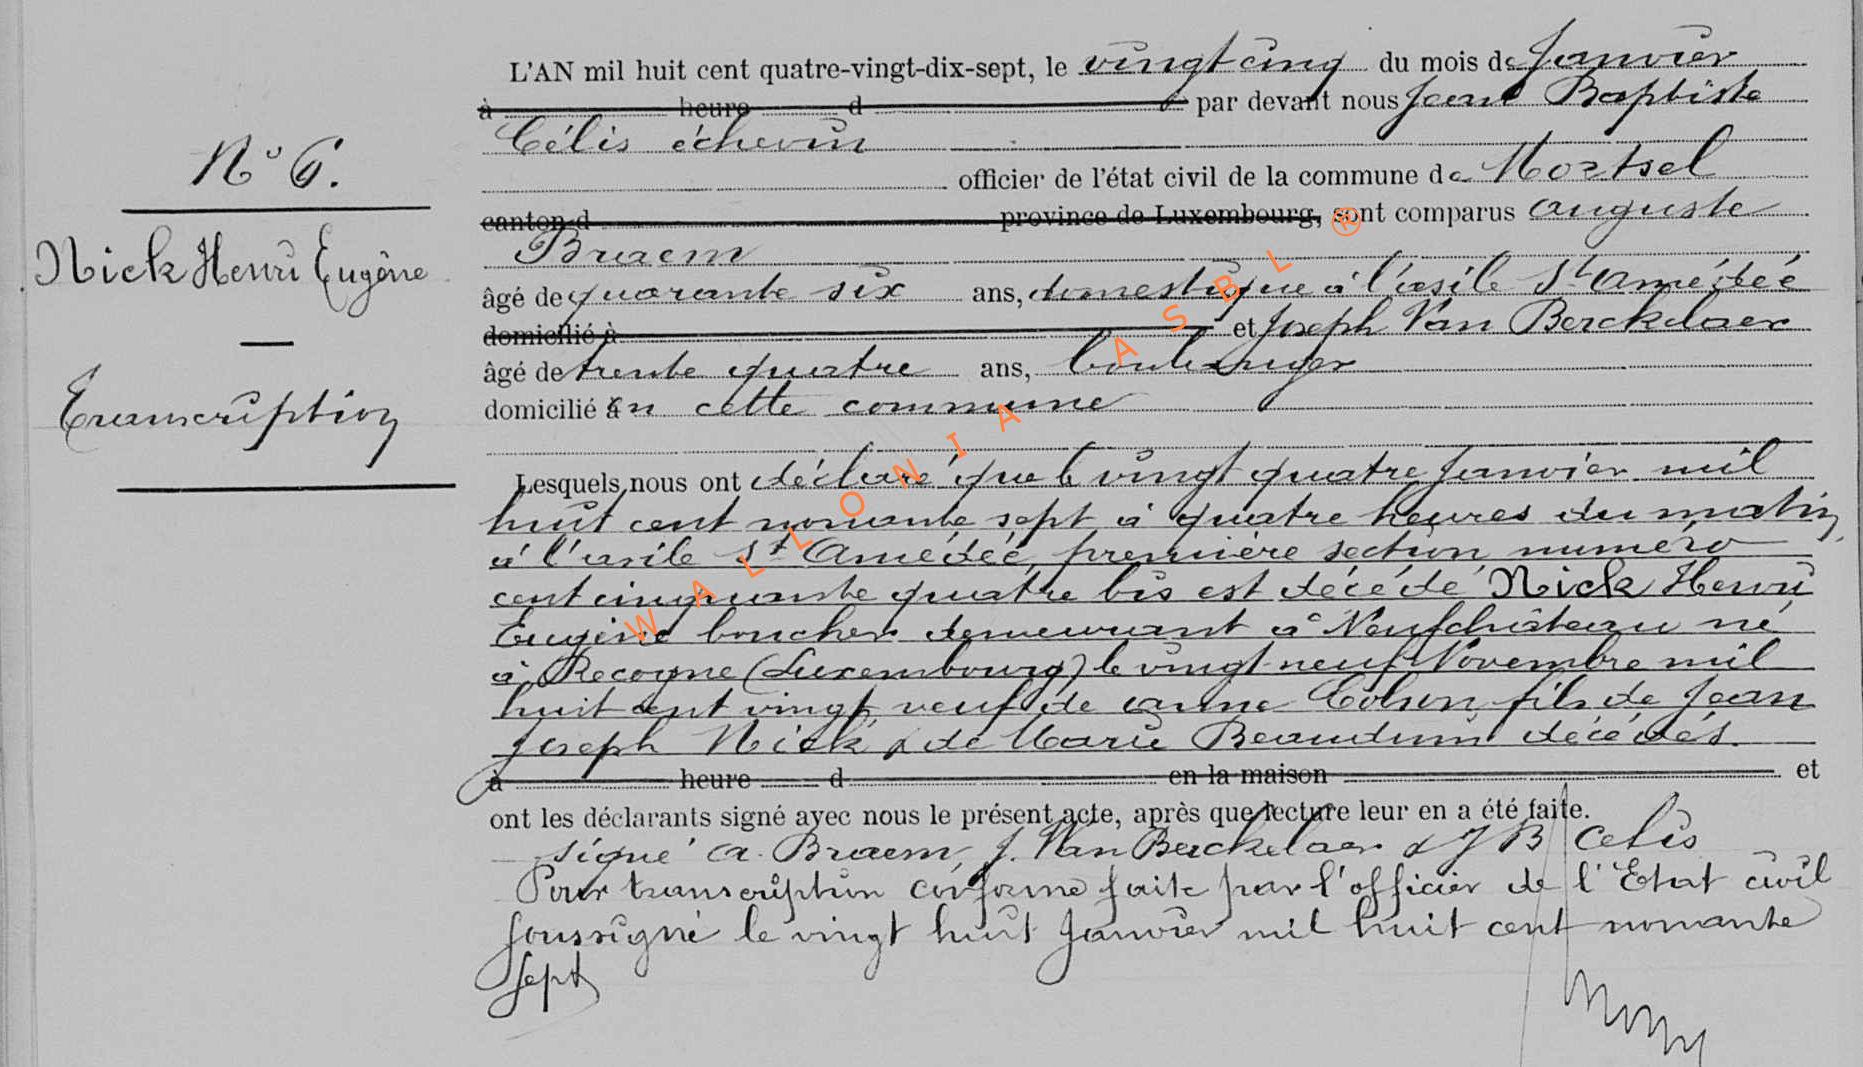 L'AN mil huit cent quatre-vingt-dix-sept, le vingt cinq du mois de Janvier
à heure d par devant nous Jean Baptiste
Célis échevin
N° 6.
officier de l'état civil de la commune de Mortsel
canton d province de Luxembourg, sont comparus Auguste
Braem
Nick Henri Eugène
âgé de quarante six ans, domestique à l'asile St Amédée
domicilié à et Joseph Van Berckelaer
âgé de trente quatre ans, boulanger
domicilié en cette commune
Transcription
Lesquels nous ont déclaré que le vingt quatre Janvier mil
huit cent nonante sept à quatre heures du matin,
à l'asile St Amédée, première section, numéro
cent cinquante quatre bis est décédé Nick Henri
Eugène boucher demeurant à Neufchâteau né
à Recogne (Luxembourg) le vingt-neuf Novembre mil
huit cent vingt veuf de Anne fils de Jean
Joseph Nick & de Marie décédés.
à heure d en la maison et
ont les déclarants signé avec nous le présent acte, après que lecture leur en a été faite.
signé A. Braem, J. Van Berckelaer & J B Celis
Pour transcription conforme faite par l'officier de l'Etat civil
soussigné le vingt huit Janvier mil huit cent nonante
sept
WALLONIA ASBL ®